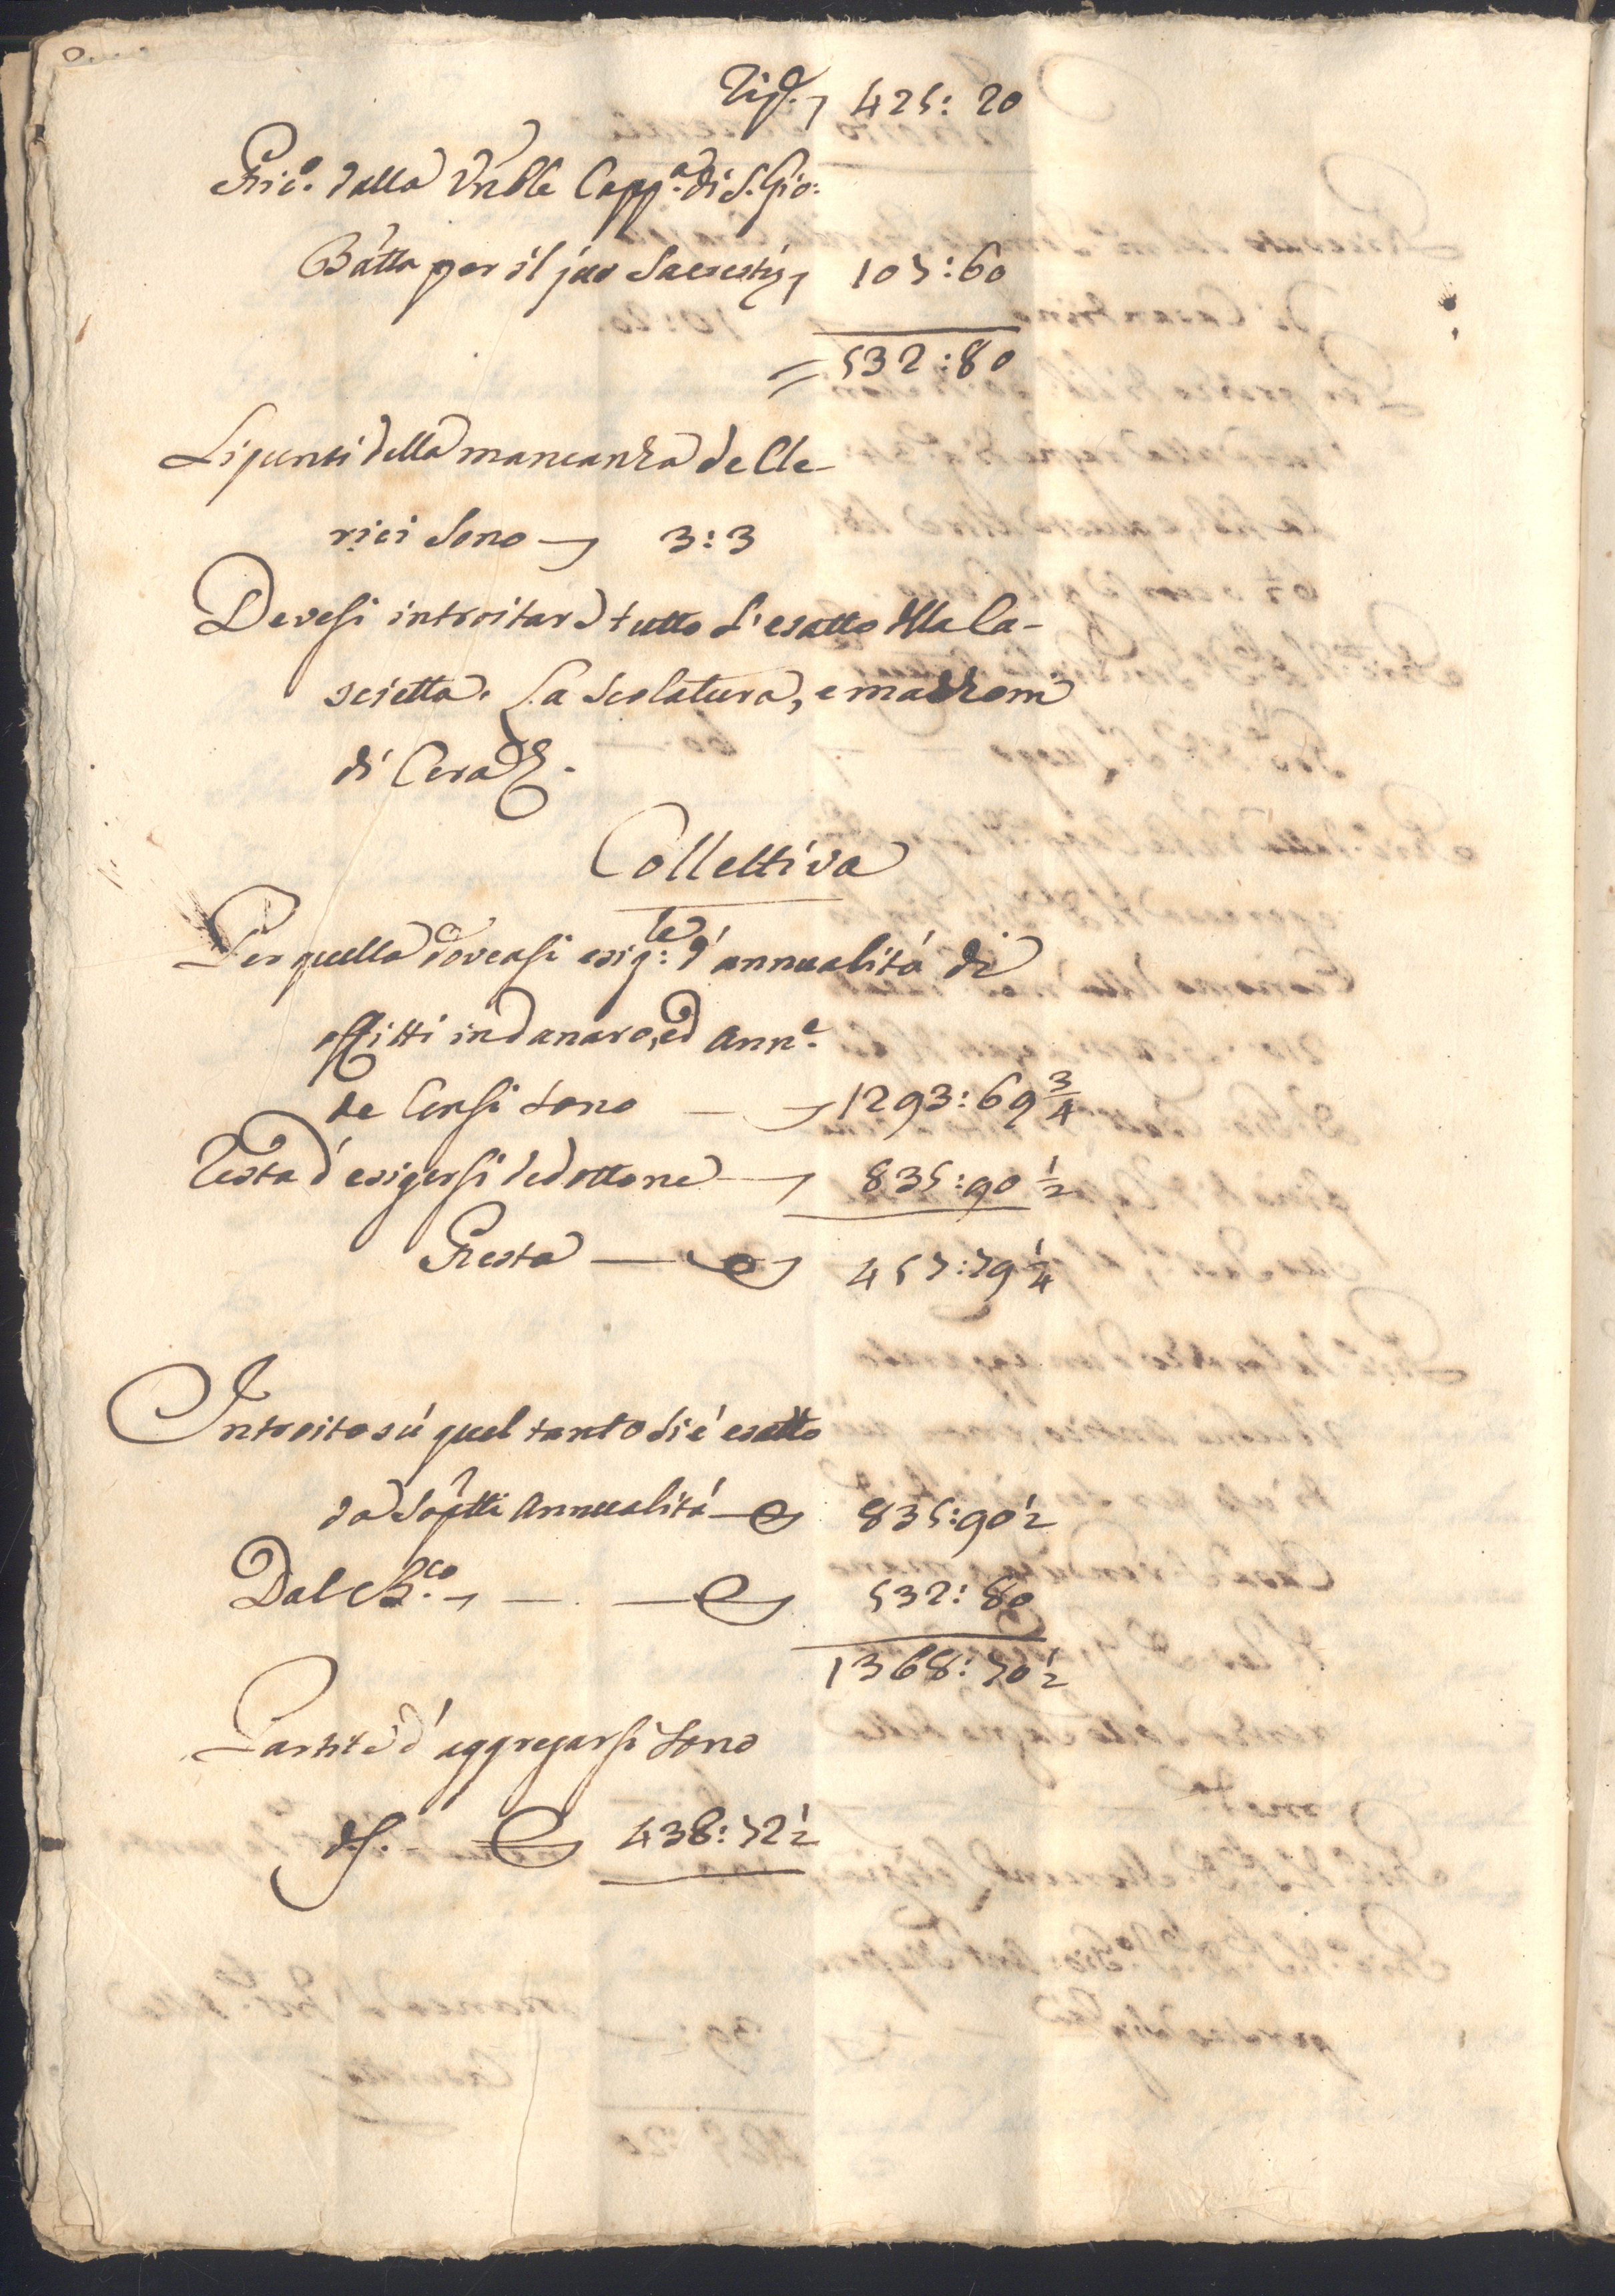 Rip.^o 425: 20
Ric.^o dalla Vnble Capp.^a di S. Gio:
Batta per il jus Sacrestię 107: 60
= 532: 80
Li punti della mancanza de Cle-
rici sono 3: 3
Devesi introitare tutto l'esatto della Ca-
scietta. La Scolatura, e
di Cera &.
Collettiva
Per quella doveasi esig:^le d'annualità di
affitti in danaro, ed Ann.^e
de Censi sono — 1293: 69 3/4
Resta d'esigersi dedottone — 835: 90 1/2
Resta — 457: 79 1/4
Introito sù quel tanto si è esatto
da Sopetti Annualità — 835: 90 1/2
Dal — 532: 80
1368: 70 1/2
Partite d'aggregarsi sono
438: 72 1/2